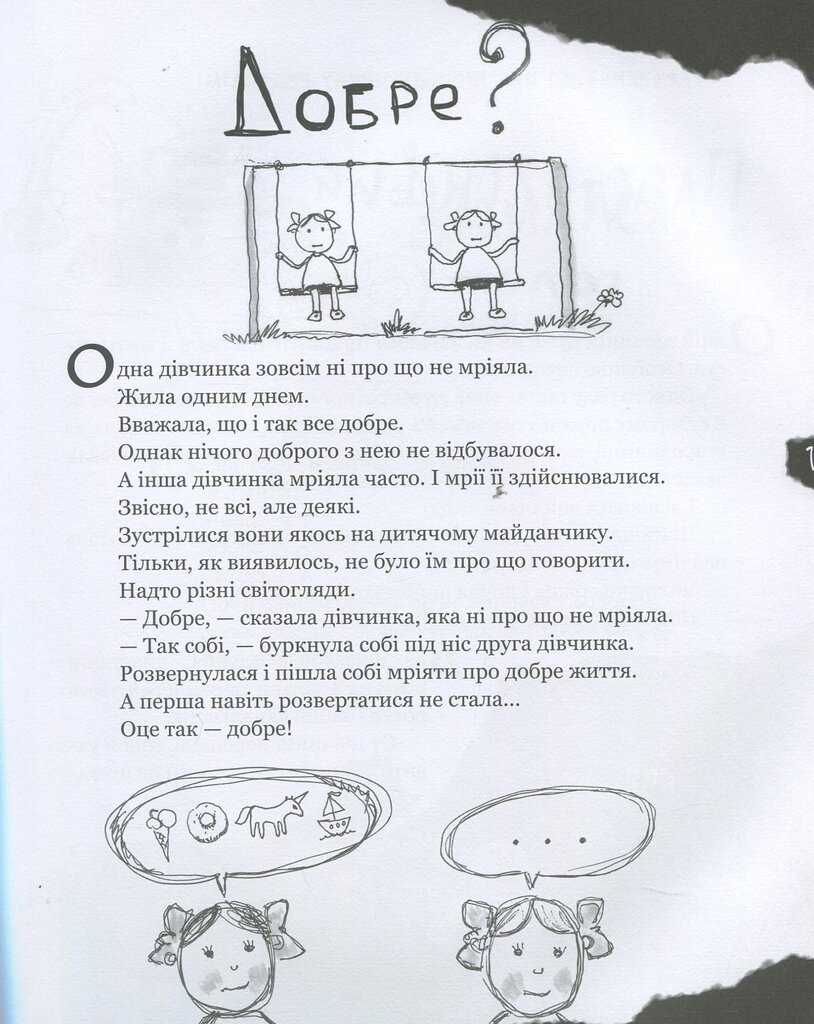 Добре?
Одна дівчинка зовсім ні про що не мріяла.
Жила одним днем.
Вважала, що і так все добре.
Однак нічого доброго з нею не відбувалося.
А інша дівчинка мріяла часто. І мрії її здійснювалися.
Звісно, не всі, але деякі.
Зустрілися вони якось на дитячому майданчику.
Тільки, як виявилось, не було їм про що говорити.
Надто різні світогляди.
— Добре, — сказала дівчинка, яка ні про що не мріяла.
— Так собі, — буркнула собі під ніс друга дівчинка.
Розвернулася і пішла собі мріяти про добре життя.
А перша навіть розвертатися не стала...
Оце так — добре!
. . .